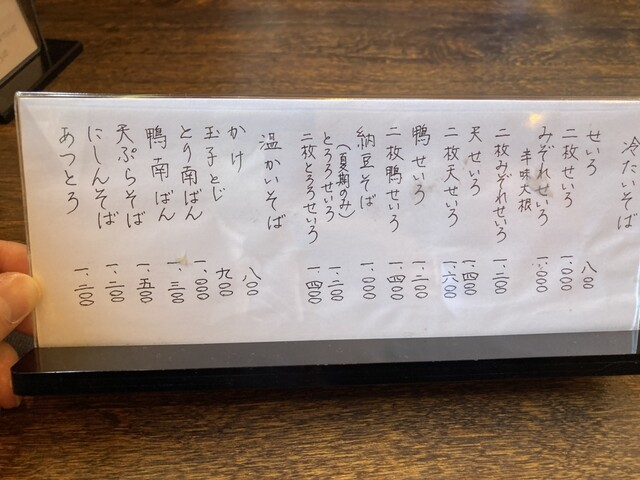 冷たいそば
せいろ 八〇〇
二枚せいろ 一、〇〇〇
みぞれせいろ 一、〇〇〇
辛味大根
二枚みぞれせいろ 一、二〇〇
天せいろ 一、四〇〇
二枚天せいろ 一、六〇〇
鴨せいろ 一、二〇〇
二枚鴨せいろ 一、四〇〇
納豆そば 一、〇〇〇
(夏期のみ)
とろろせいろ 一、二〇〇
二枚とろろせいろ 一、四〇〇
温かいそば
かけ 八〇〇
玉子とじ 九〇〇
とり南ばん 一、〇〇〇
鴨南ばん 一、三〇〇
天ぷらそば 一、五〇〇
にしんそば 一、二〇〇
あつとろ 一、二〇〇